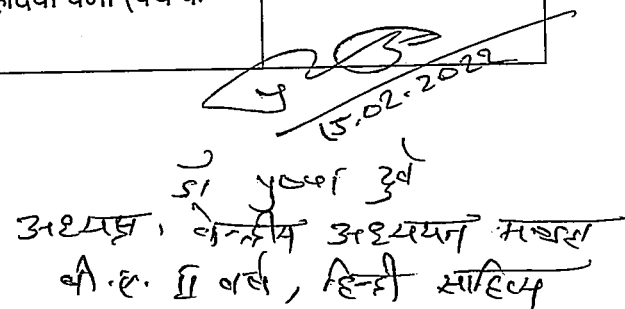 15.02.2022
डॉ पुष्पा दुबे
अध्यक्ष, केन्द्रीय अध्ययन मण्डल
बी.ए. II वर्ष, हिन्दी साहित्य